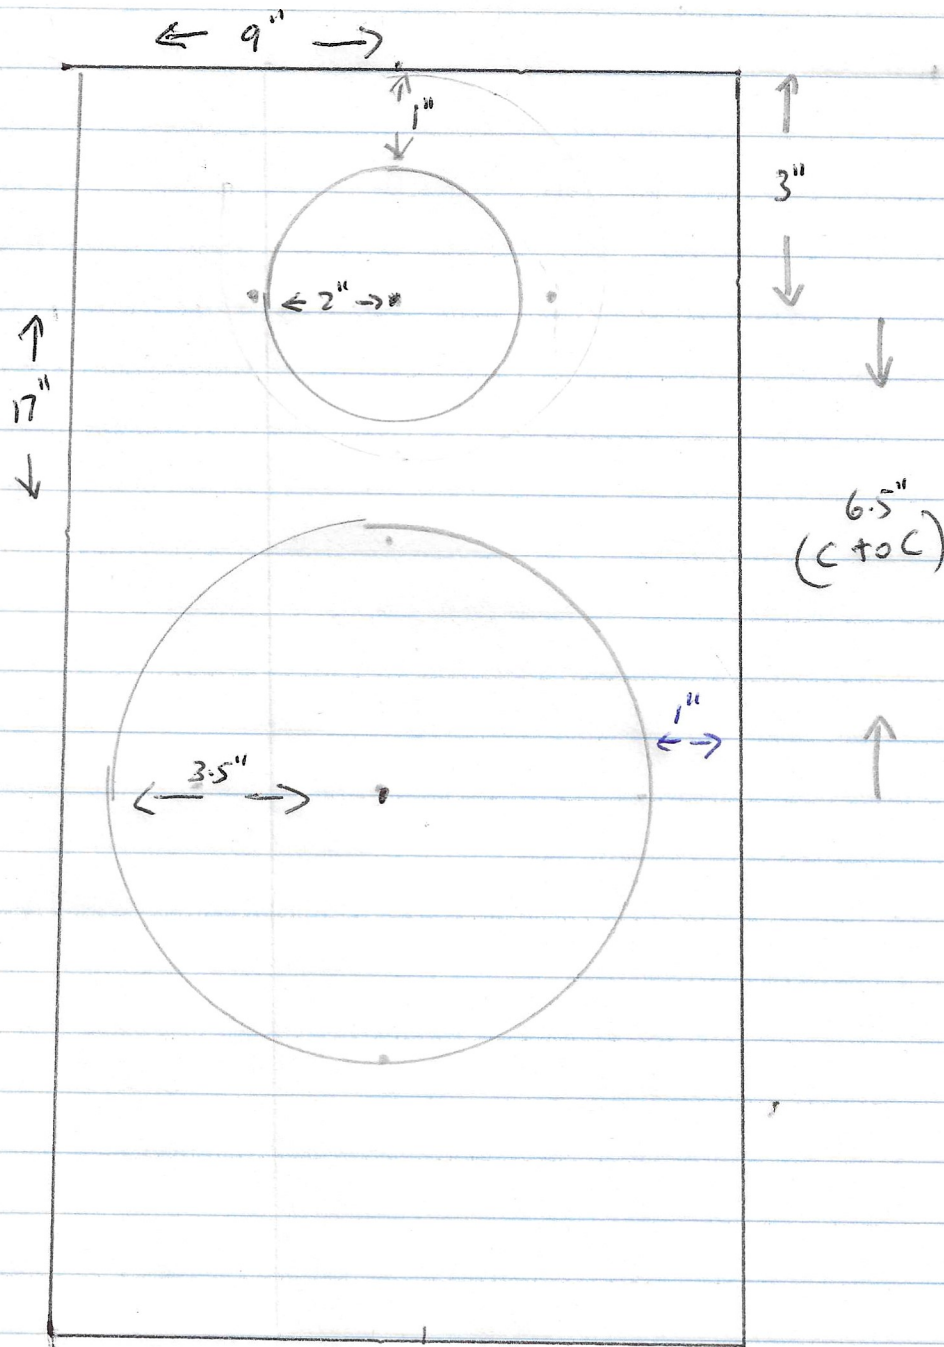 ← 9" →
1"
3"
← 2" →
17"
6.5"
(C to C)
1"
3.5"